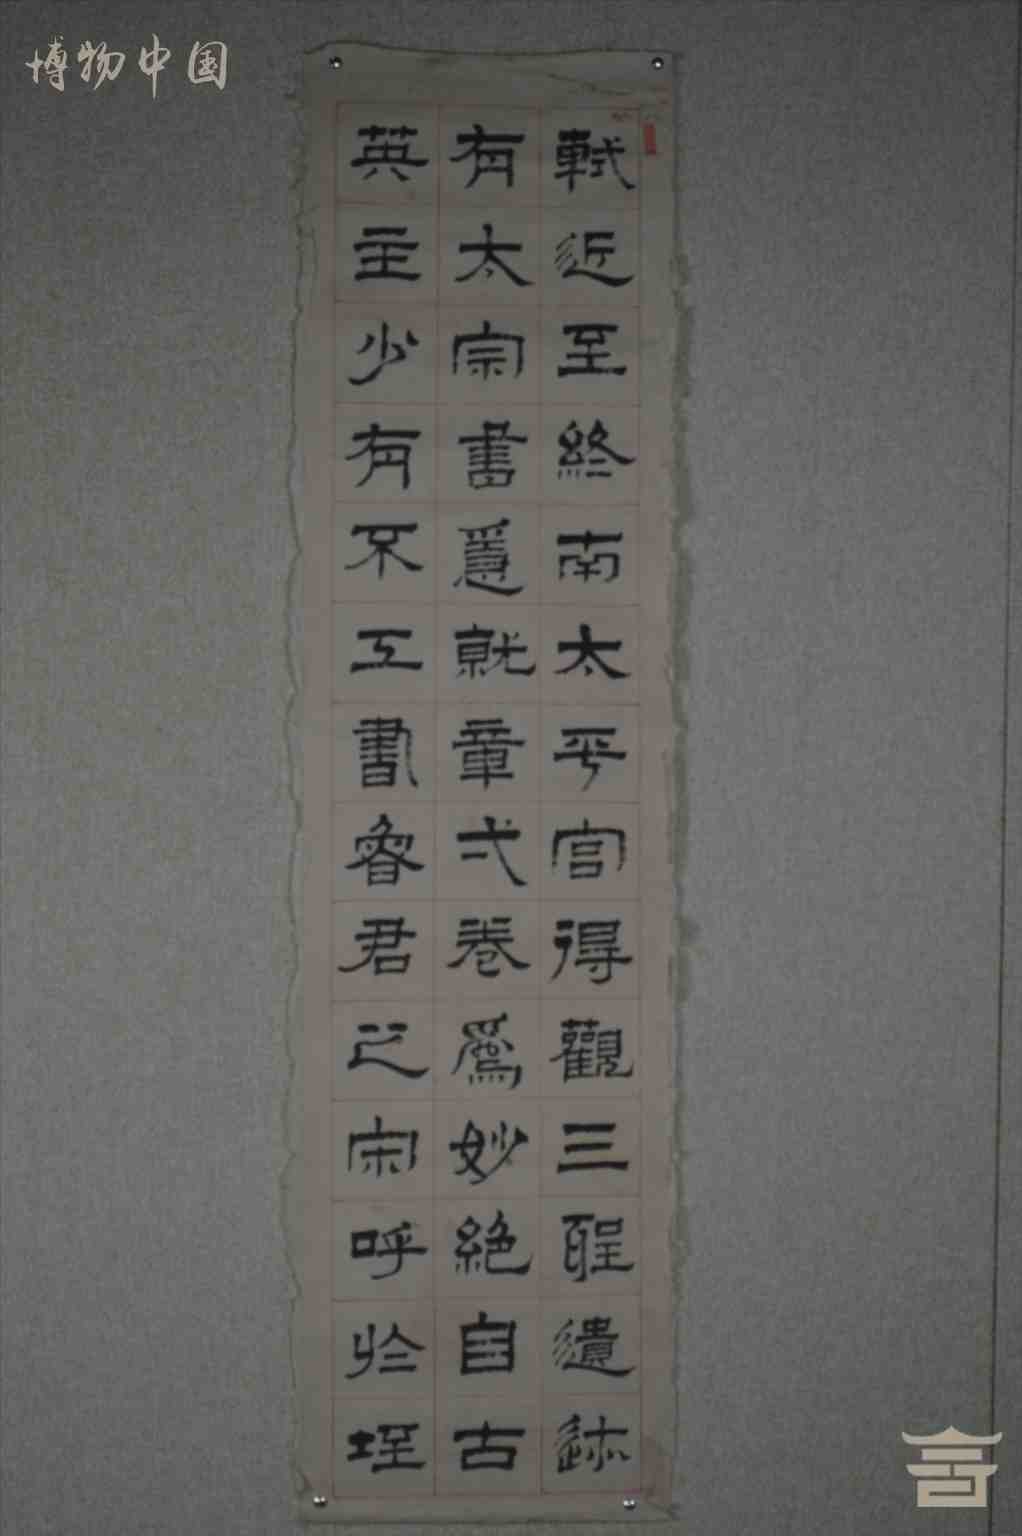 博物中国
軾近至終南太平宮得觀三聖遺迹
有太宗書急就章弌卷爲妙絕自古
英主少有不工書魯君之宋呼於垤